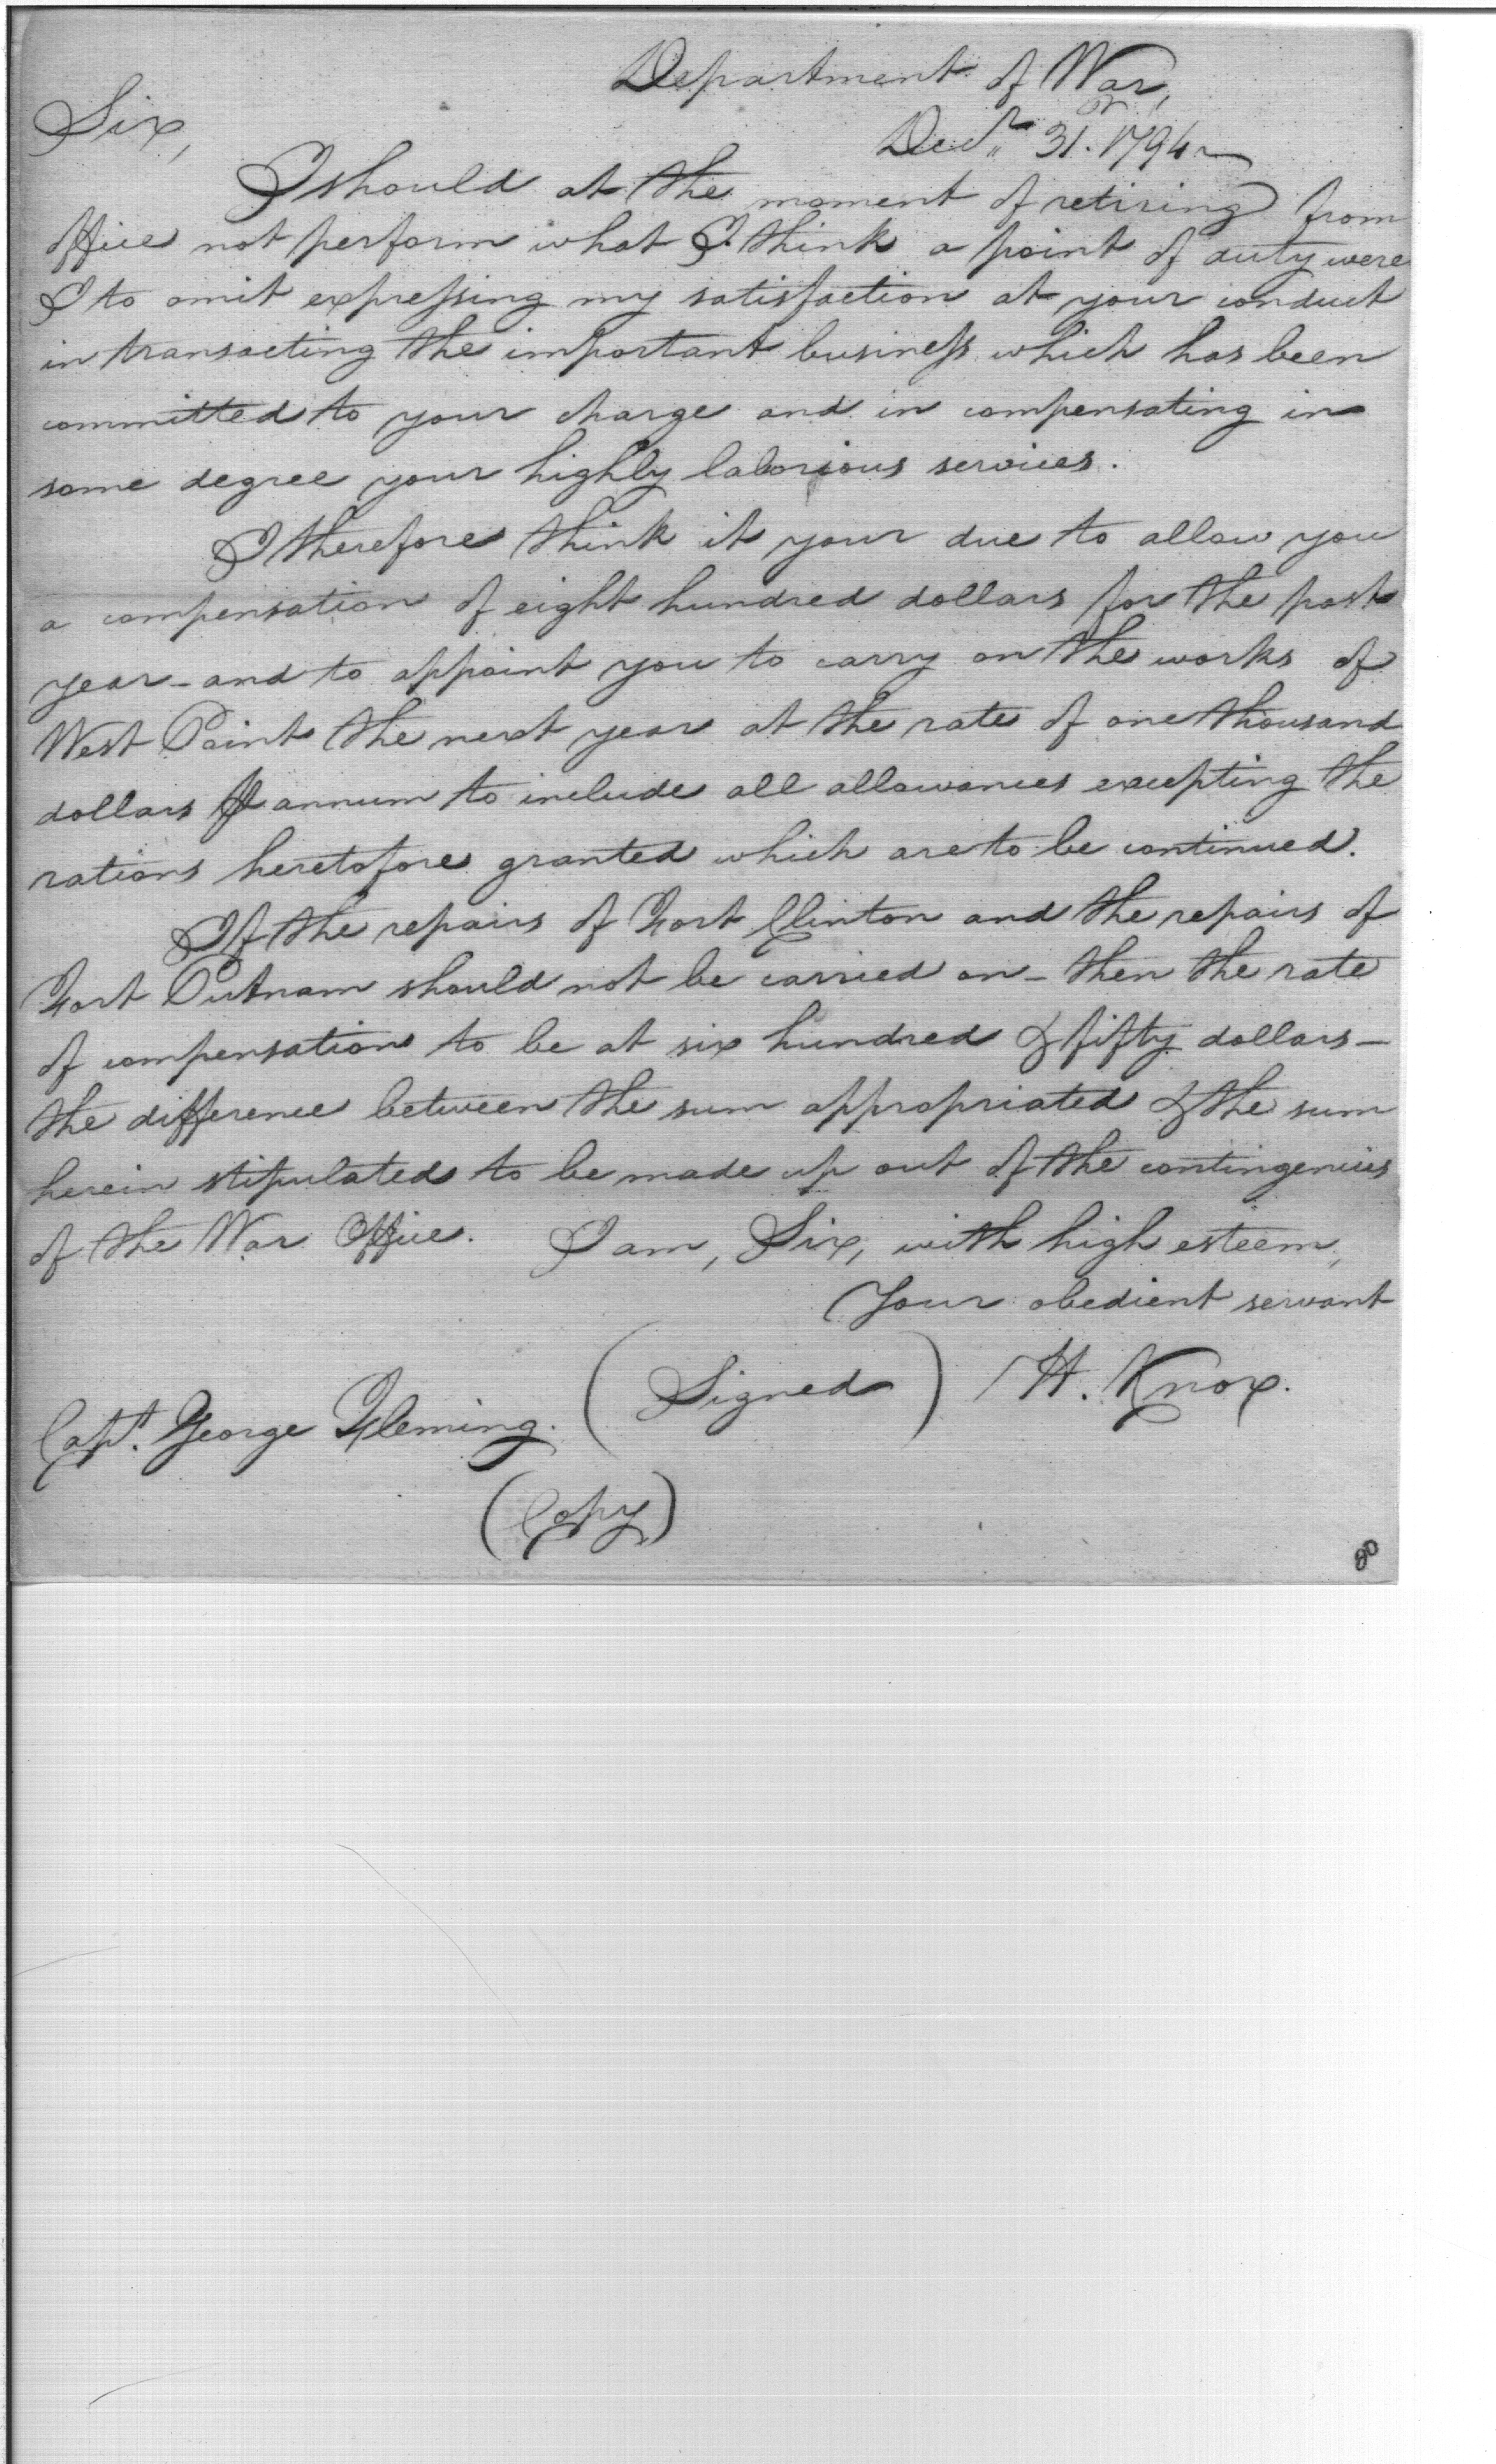 Department of War,
Decr. 31. 1794
Sir,
I should at the moment of retiring from
office not perform what I think a point of duty were
I to omit expressing my satisfaction at your conduct
in transacting the important business which has been
committed to your charge and in compensating in
some degree your highly laborious services.
I therefore think it your due to allow you
a compensation of eight hundred dollars for the past
year - and to appoint you to carry on the works of
West Point the next year at the rate of one thousand
dollars ⅌ annum to include all allowances excepting the
rations heretofore granted which are to be continued.
If the repairs of Fort Clinton and the repairs of
Fort Putnam should not be carried on - then the rate
of compensation to be at six hundred & fifty dollars -
the difference between the sum appropriated & the sum
herein stipulated to be made up out of the contingencies
of the War Office. I am, Sir, with high esteem,
Your obedient servant
(Signed) H. Knox.
Capt. George Fleming.
(Copy)
80